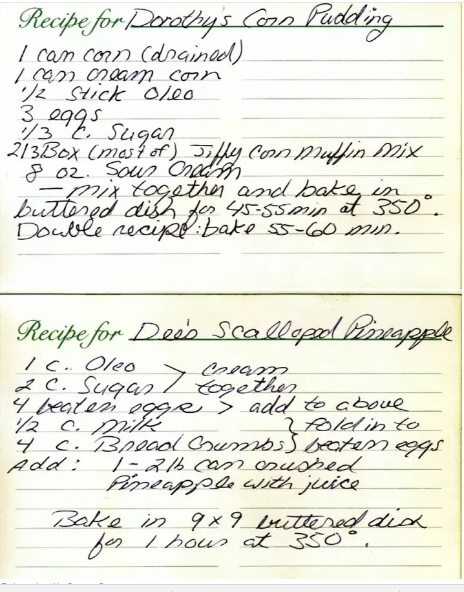 Recipe for Dorothy's Corn Pudding
1 can corn (drained)
1 can cream corn
1/2 stick oleo
3 eggs
1/3 c. Sugar
2/3 Box (most of) Jiffy Corn Muffin Mix
8 oz. Sour Cream
— mix together and bake in
buttered dish for 45-55 min at 350°.
Double recipe: bake 55-60 min.
Recipe for Dee's Scalloped Pineapple
1 c. Oleo > cream
2 c. Sugar > together
4 beaten eggs > add to above
1/2 c. milk } fold in to
4 c. Bread Crumbs } beaten eggs
Add: 1-2 lb can crushed
Pineapple with juice
Bake in 9x9 buttered dish
for 1 hour at 350°.